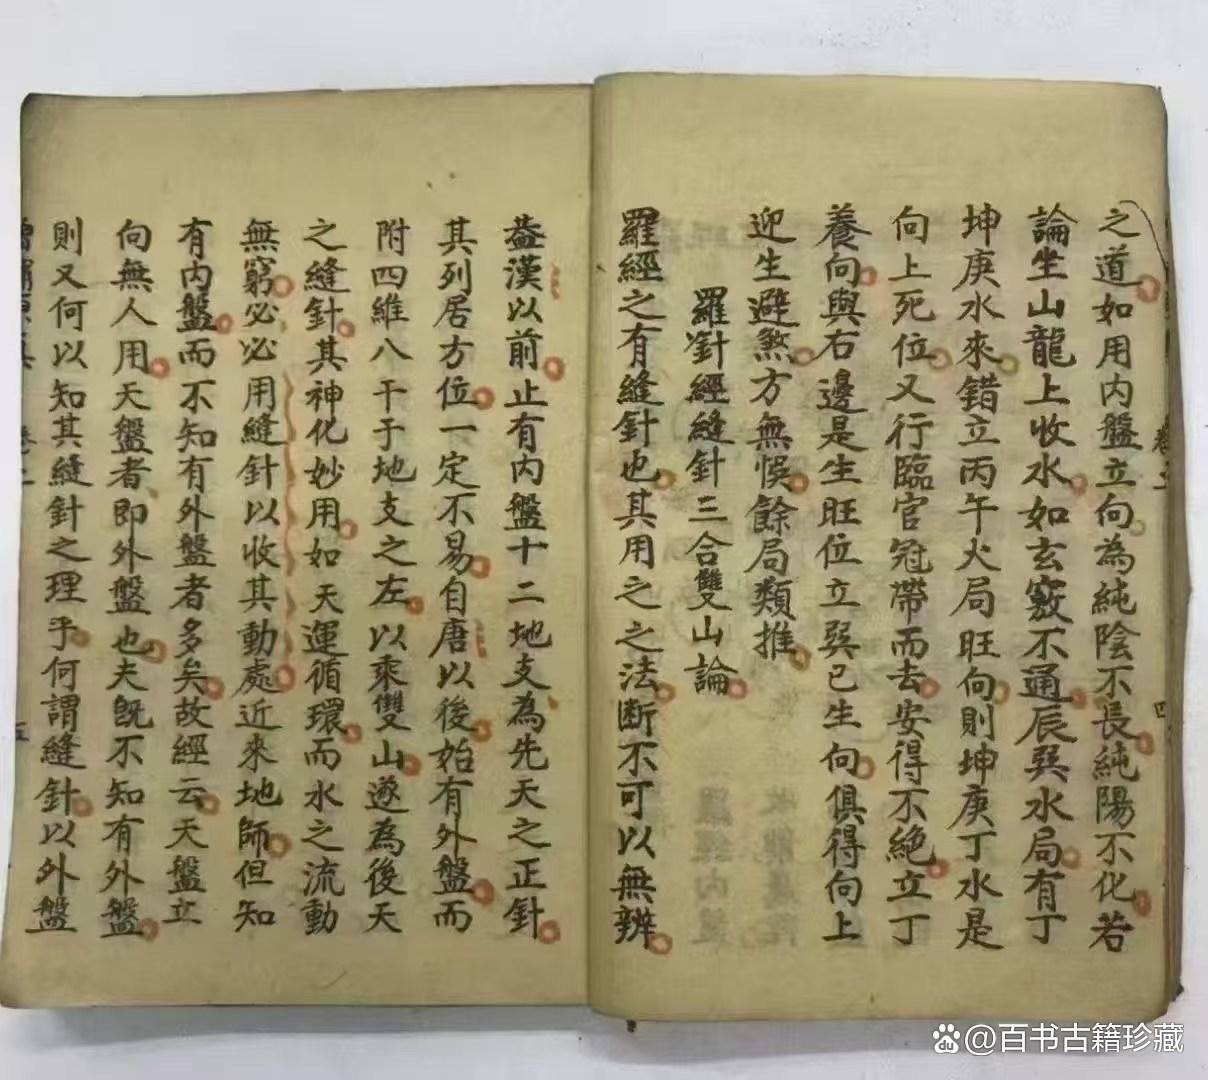 之道如用内盤立向為純陰不長純陽不化若
論坐山龍上收水如玄竅不通辰巽水局有丁
坤庚水來錯立丙午火局旺向則坤庚丁水是
向上死位又行臨官冠帶而去安得不絕立丁
養向與右邊是生旺位立巽巳生向俱得向上
迎生避煞方無悞餘局類推
羅針經縫針三合雙山論
羅經之有縫針也其用之之法断不可以無辨
葢漢以前止有内盤十二地支為先天之正針
其列居方位一定不易自唐以後始有外盤而
附四維八干于地支之左以乘雙山遂為後天
之縫針其神化妙用如天運循環而水之流動
無窮必必用縫針以收其動處近來地師但知
有内盤而不知有外盤者多矣故經云天盤立
向無人用天盤者即外盤也夫既不知有外盤
則又何以知其縫針之理乎何謂縫針以外盤
五
四
@百书古籍珍藏